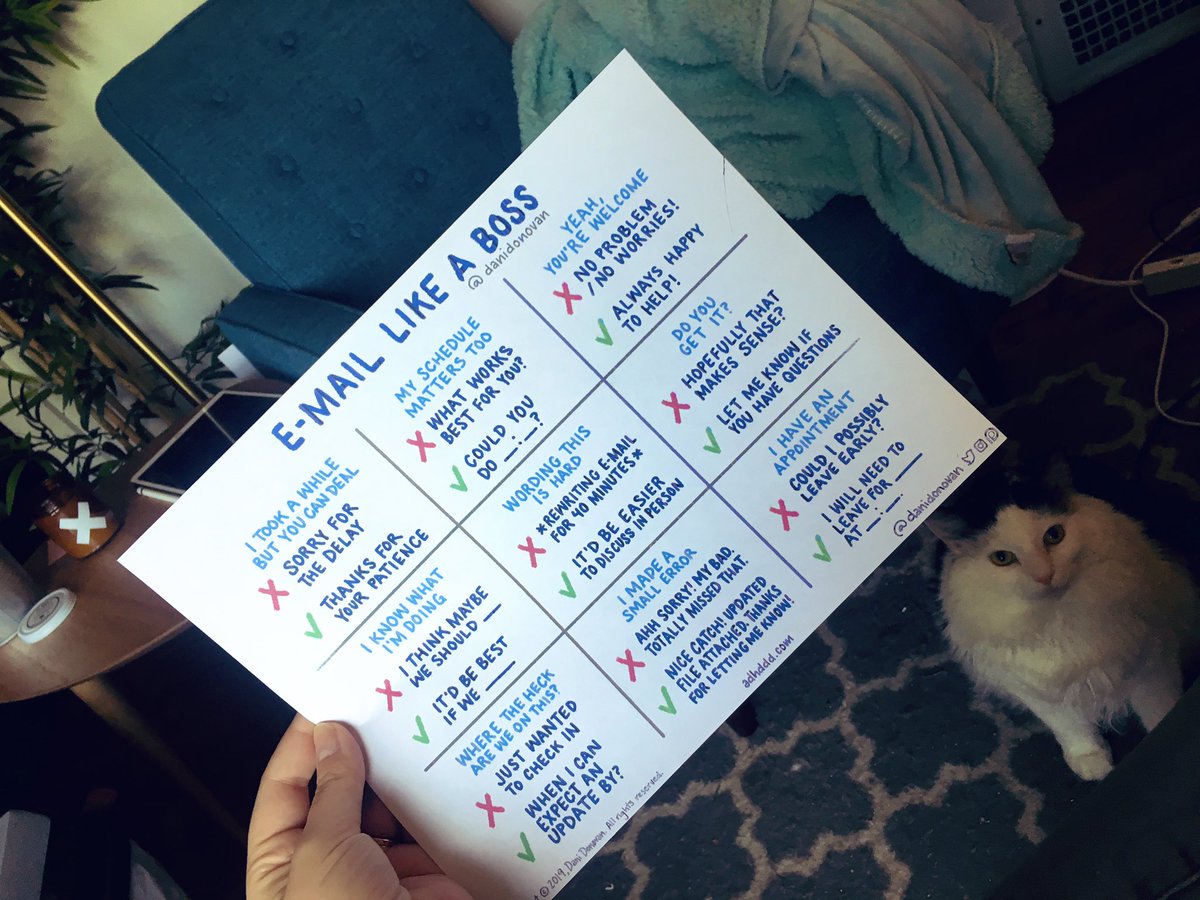 E-MAIL LIKE A BOSS
@danidonovan
I TOOK A WHILE
BUT YOU CAN DEAL
SORRY FOR
THE DELAY
THANKS FOR
YOUR PATIENCE
MY SCHEDULE
MATTERS TOO
WHAT WORKS
BEST FOR YOU?
COULD YOU
DO __:__?
YEAH,
YOU'RE WELCOME
NO PROBLEM
/NO WORRIES!
ALWAYS HAPPY
TO HELP!
I KNOW WHAT
I'M DOING
I THINK MAYBE
WE SHOULD __
IT'D BE BEST
IF WE ____
WORDING THIS
IS HARD
*REWRITING E-MAIL
FOR 40 MINUTES*
IT'D BE EASIER
TO DISCUSS IN PERSON
DO YOU
GET IT?
HOPEFULLY THAT
MAKES SENSE?
LET ME KNOW IF
YOU HAVE QUESTIONS
WHERE THE HECK
ARE WE ON THIS?
JUST WANTED
TO CHECK IN
WHEN I CAN
EXPECT AN
UPDATE BY?
I MADE A
SMALL ERROR
AHH SORRY! MY BAD
TOTALLY MISSED THAT.
NICE CATCH! UPDATED
FILE ATTACHED. THANKS
FOR LETTING ME KNOW!
I HAVE AN
APPOINTMENT
COULD I POSSIBLY
LEAVE EARLY?
I WILL NEED TO
LEAVE FOR ____
AT __:__.
© 2019, Dani Donovan. All rights reserved.
adhddd.com
@danidonovan